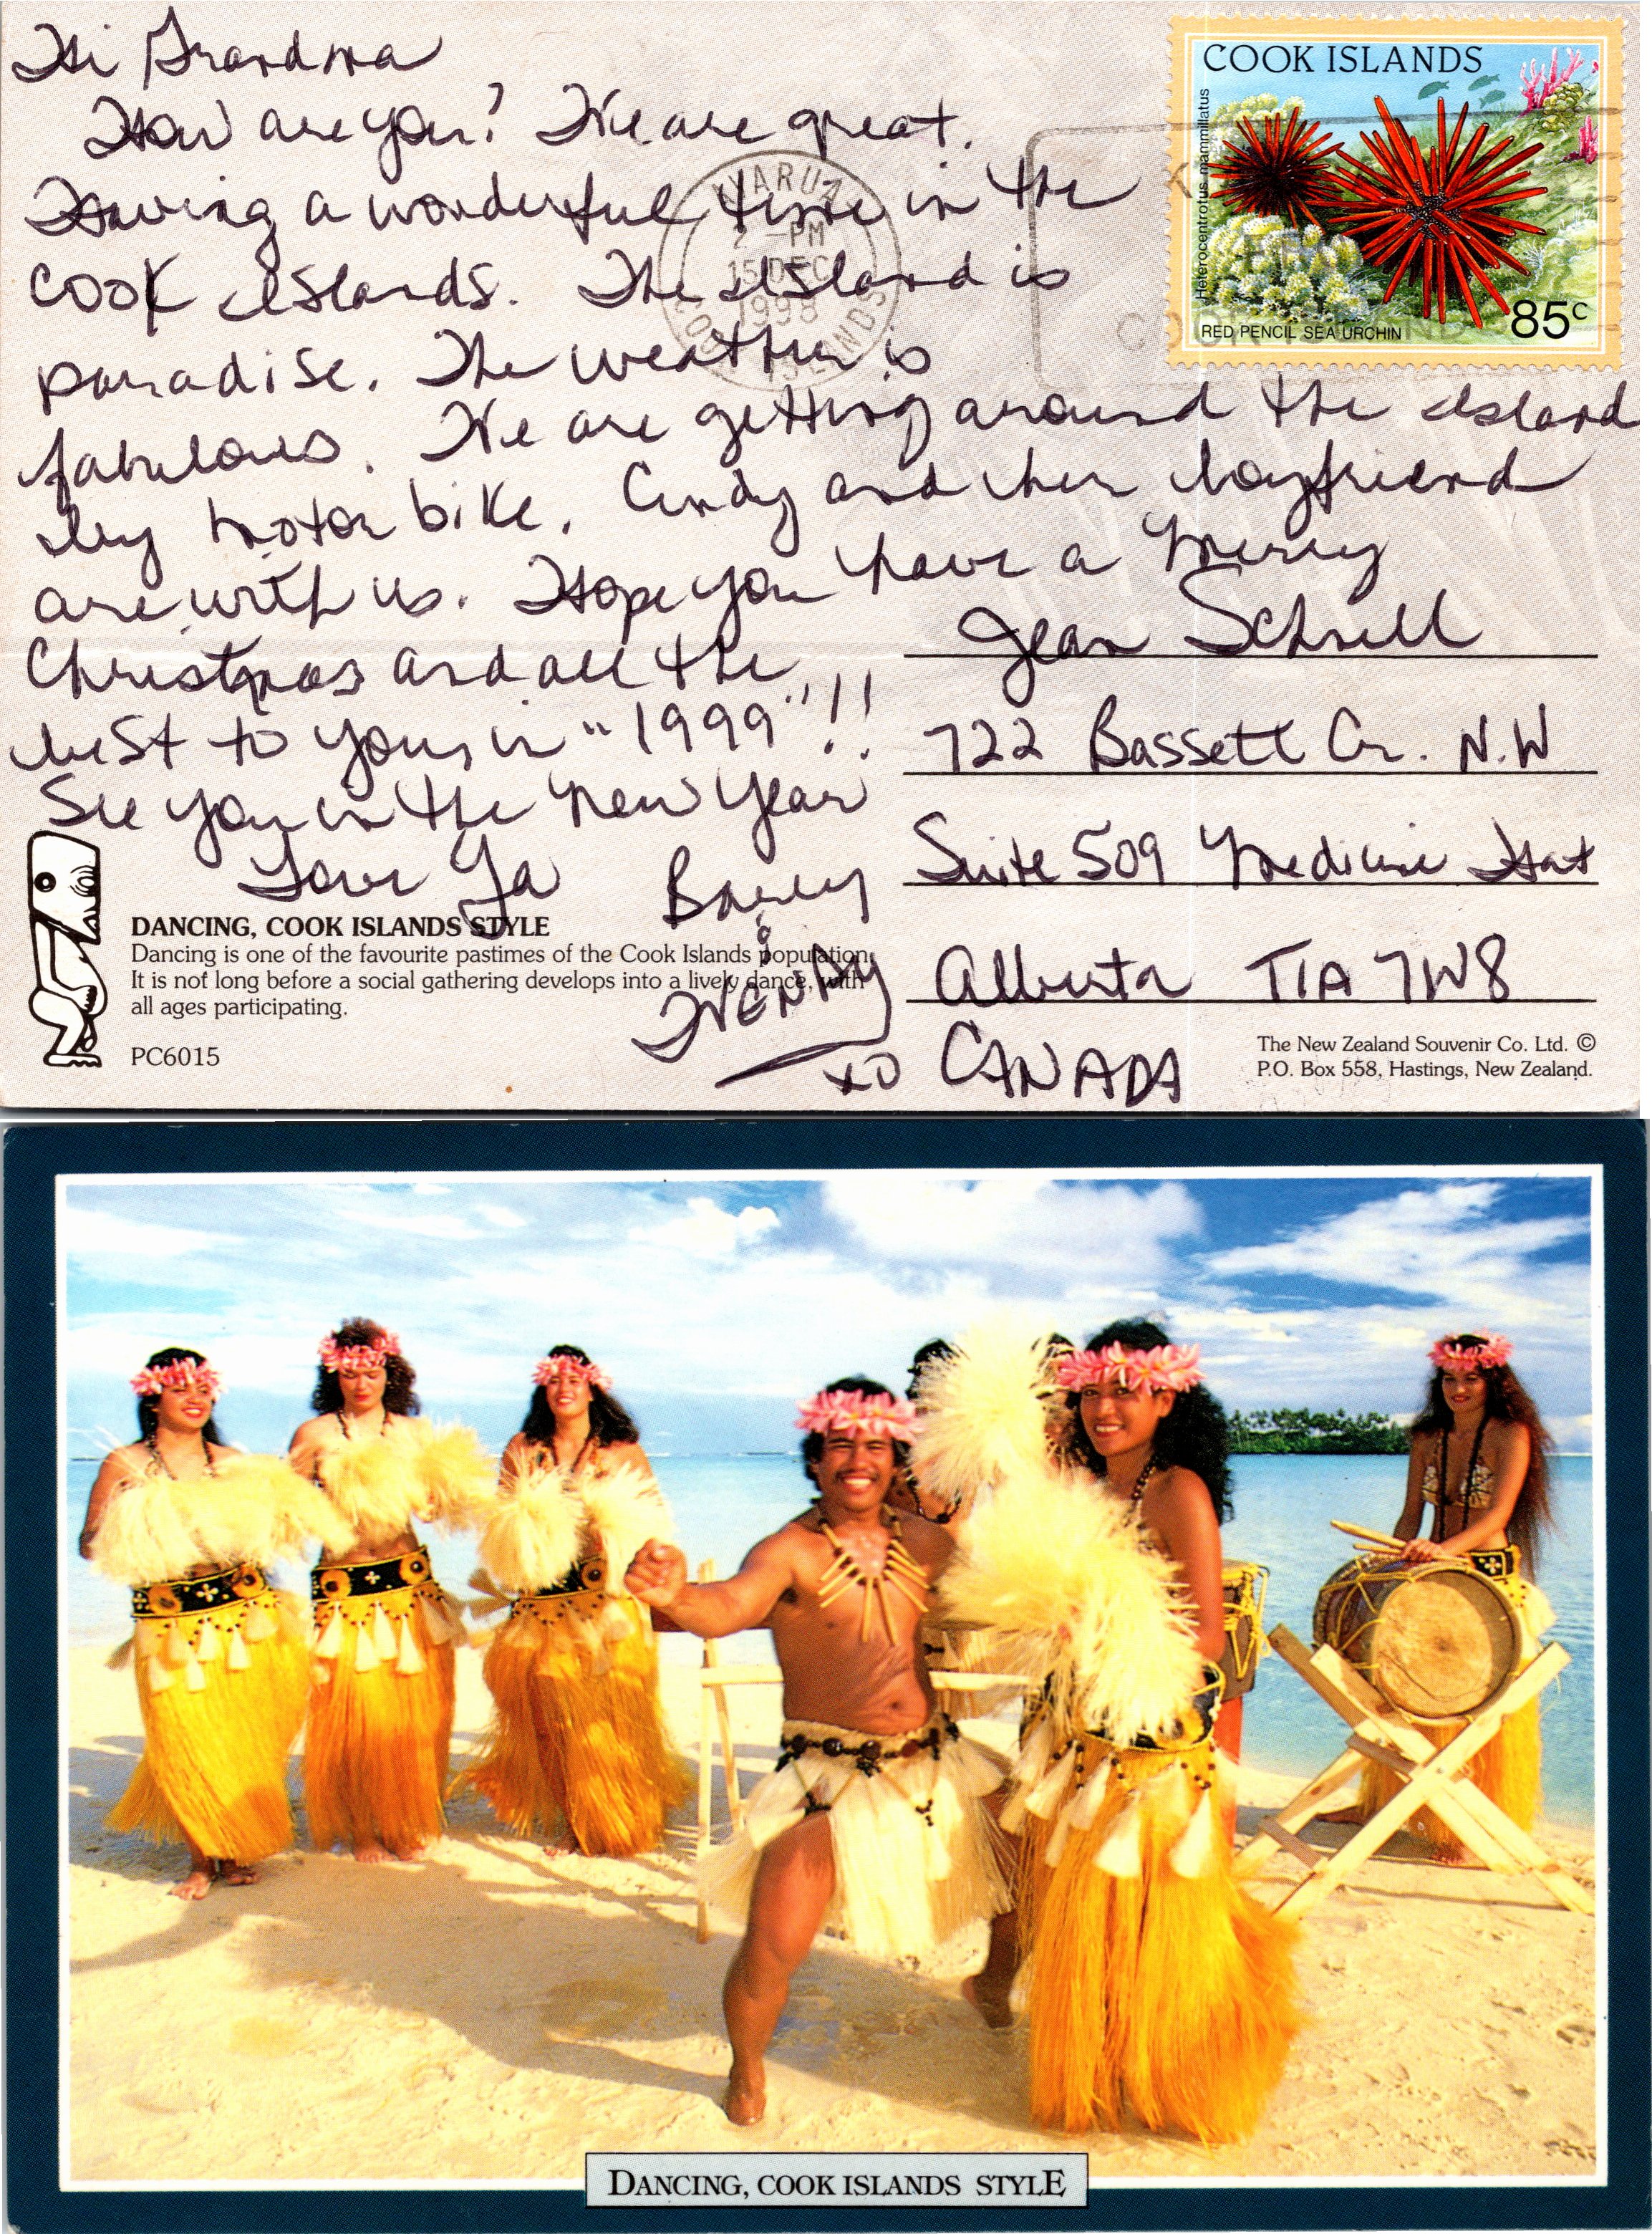 Hi Grandma
How are you? We are great.
Having a wonderful time in the
COOK Islands. The Island is
paradise. The weather is
fabulous. We are getting around the Island
by motor bike. Cindy and her boyfriend
are with us. Hope you have a Merry
Christmas and all the
best to you in "1999"!!
See you in the New Year
Love Ya Barry
&
WENDY
XO
COOK ISLANDS
Heterocentrotus mammillatus
RED PENCIL SEA URCHIN
85c
AVARUA
2 -PM
15 DEC
1998
COOK ISLANDS
Jean Schnell
722 Bassett Cr. N.W
Suite 509 Medicine Hat
Alberta T1A 7W8
CANADA
DANCING, COOK ISLANDS STYLE
Dancing is one of the favourite pastimes of the Cook Islands population.
It is not long before a social gathering develops into a lively dance, with
all ages participating.
PC6015
The New Zealand Souvenir Co. Ltd. ©
P.O. Box 558, Hastings, New Zealand.
DANCING, COOK ISLANDS STYLE